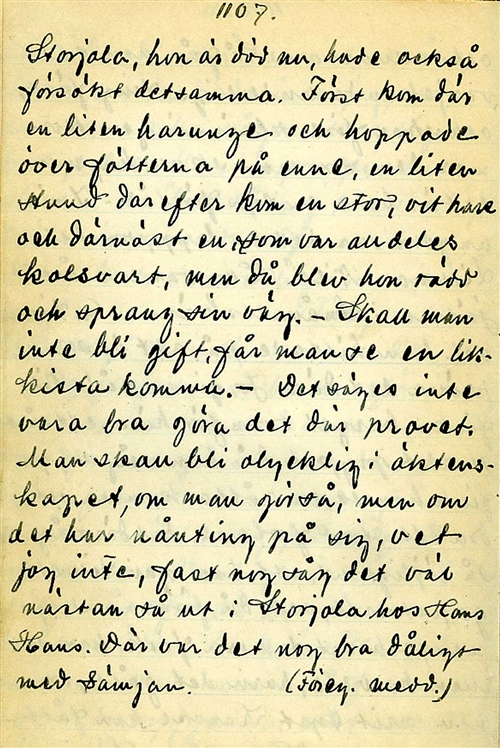 1107.
Storjola, hon är död nu, hade också
försökt detsamma. Först kom där
en liten harunge och hoppade
över fötterna på enne, en liten
stund därefter kom en stor, vit hare
och därnäst en, som var alldeles
kolsvart, men då blev hon rädd
och sprang sin väg. – Skall man
inte bli gift, får man se en lik-
kista komma. – Det säges inte
vara bra göra det där provet.
Man skall bli olycklig i äktens-
kapet, om man gör så, men om
det har nånting på sig, vet
jag inte, fast nog såg det väl
nästan så ut i Storjola hos Hans
Hans. Där var det nog bra dåligt
med sämjan. (Föreg. medd.)